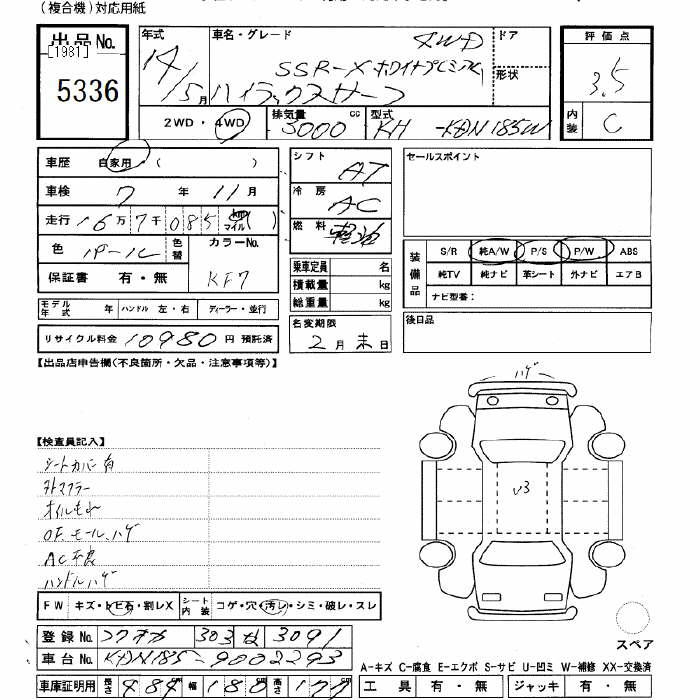 (複合機)対応用紙
出品No. [1981] 5336
年式 14/5月
車名・グレード 4WD
SSR-X ホワイトプレミアム
ハイラックスサーフ
ドア
形状
2WD・4WD
排気量 3000 cc
型式 KH-KDN185W
評価点 3.5
内装 C
車歴 自家用・( )
車検 7年 11月
走行 16万7千085 km マイル
色 パール 色替
カラーNo. KF7
保証書 有・無
モデル年式 年 ハンドル 左・右 ディーラー・並行
リサイクル料金 10980円 預託済
シフト AT
冷房 AC
燃料 軽油
乗車定員 名
積載量 kg
総重量 kg
名変期限
2月末日
セールスポイント
装備品
S/R 純A/W P/S P/W ABS
純TV 純ナビ 革シート 外ナビ エアB
ナビ型番:
後日品
【出品店申告欄(不良箇所・欠品・注意事項等)】
ハゲ
【検査員記入】
シートカバー有
オイルもれ
OF.モール.ハゲ
AC不良
ハンドルハゲ
U3
FW キズ・トビ石・割レX
シート内装 コゲ・穴・汚レ・シミ・破レ・スレ
登録No. フクオカ 303 な 3091
車台No. KDN185-9002293
車庫証明用 長さ 484 幅 180 高さ 177
スペア
A-キズ C-腐食 E-エクボ S-サビ U-凹ミ W-補修 XX-交換済
工具 有・無 ジャッキ 有・無